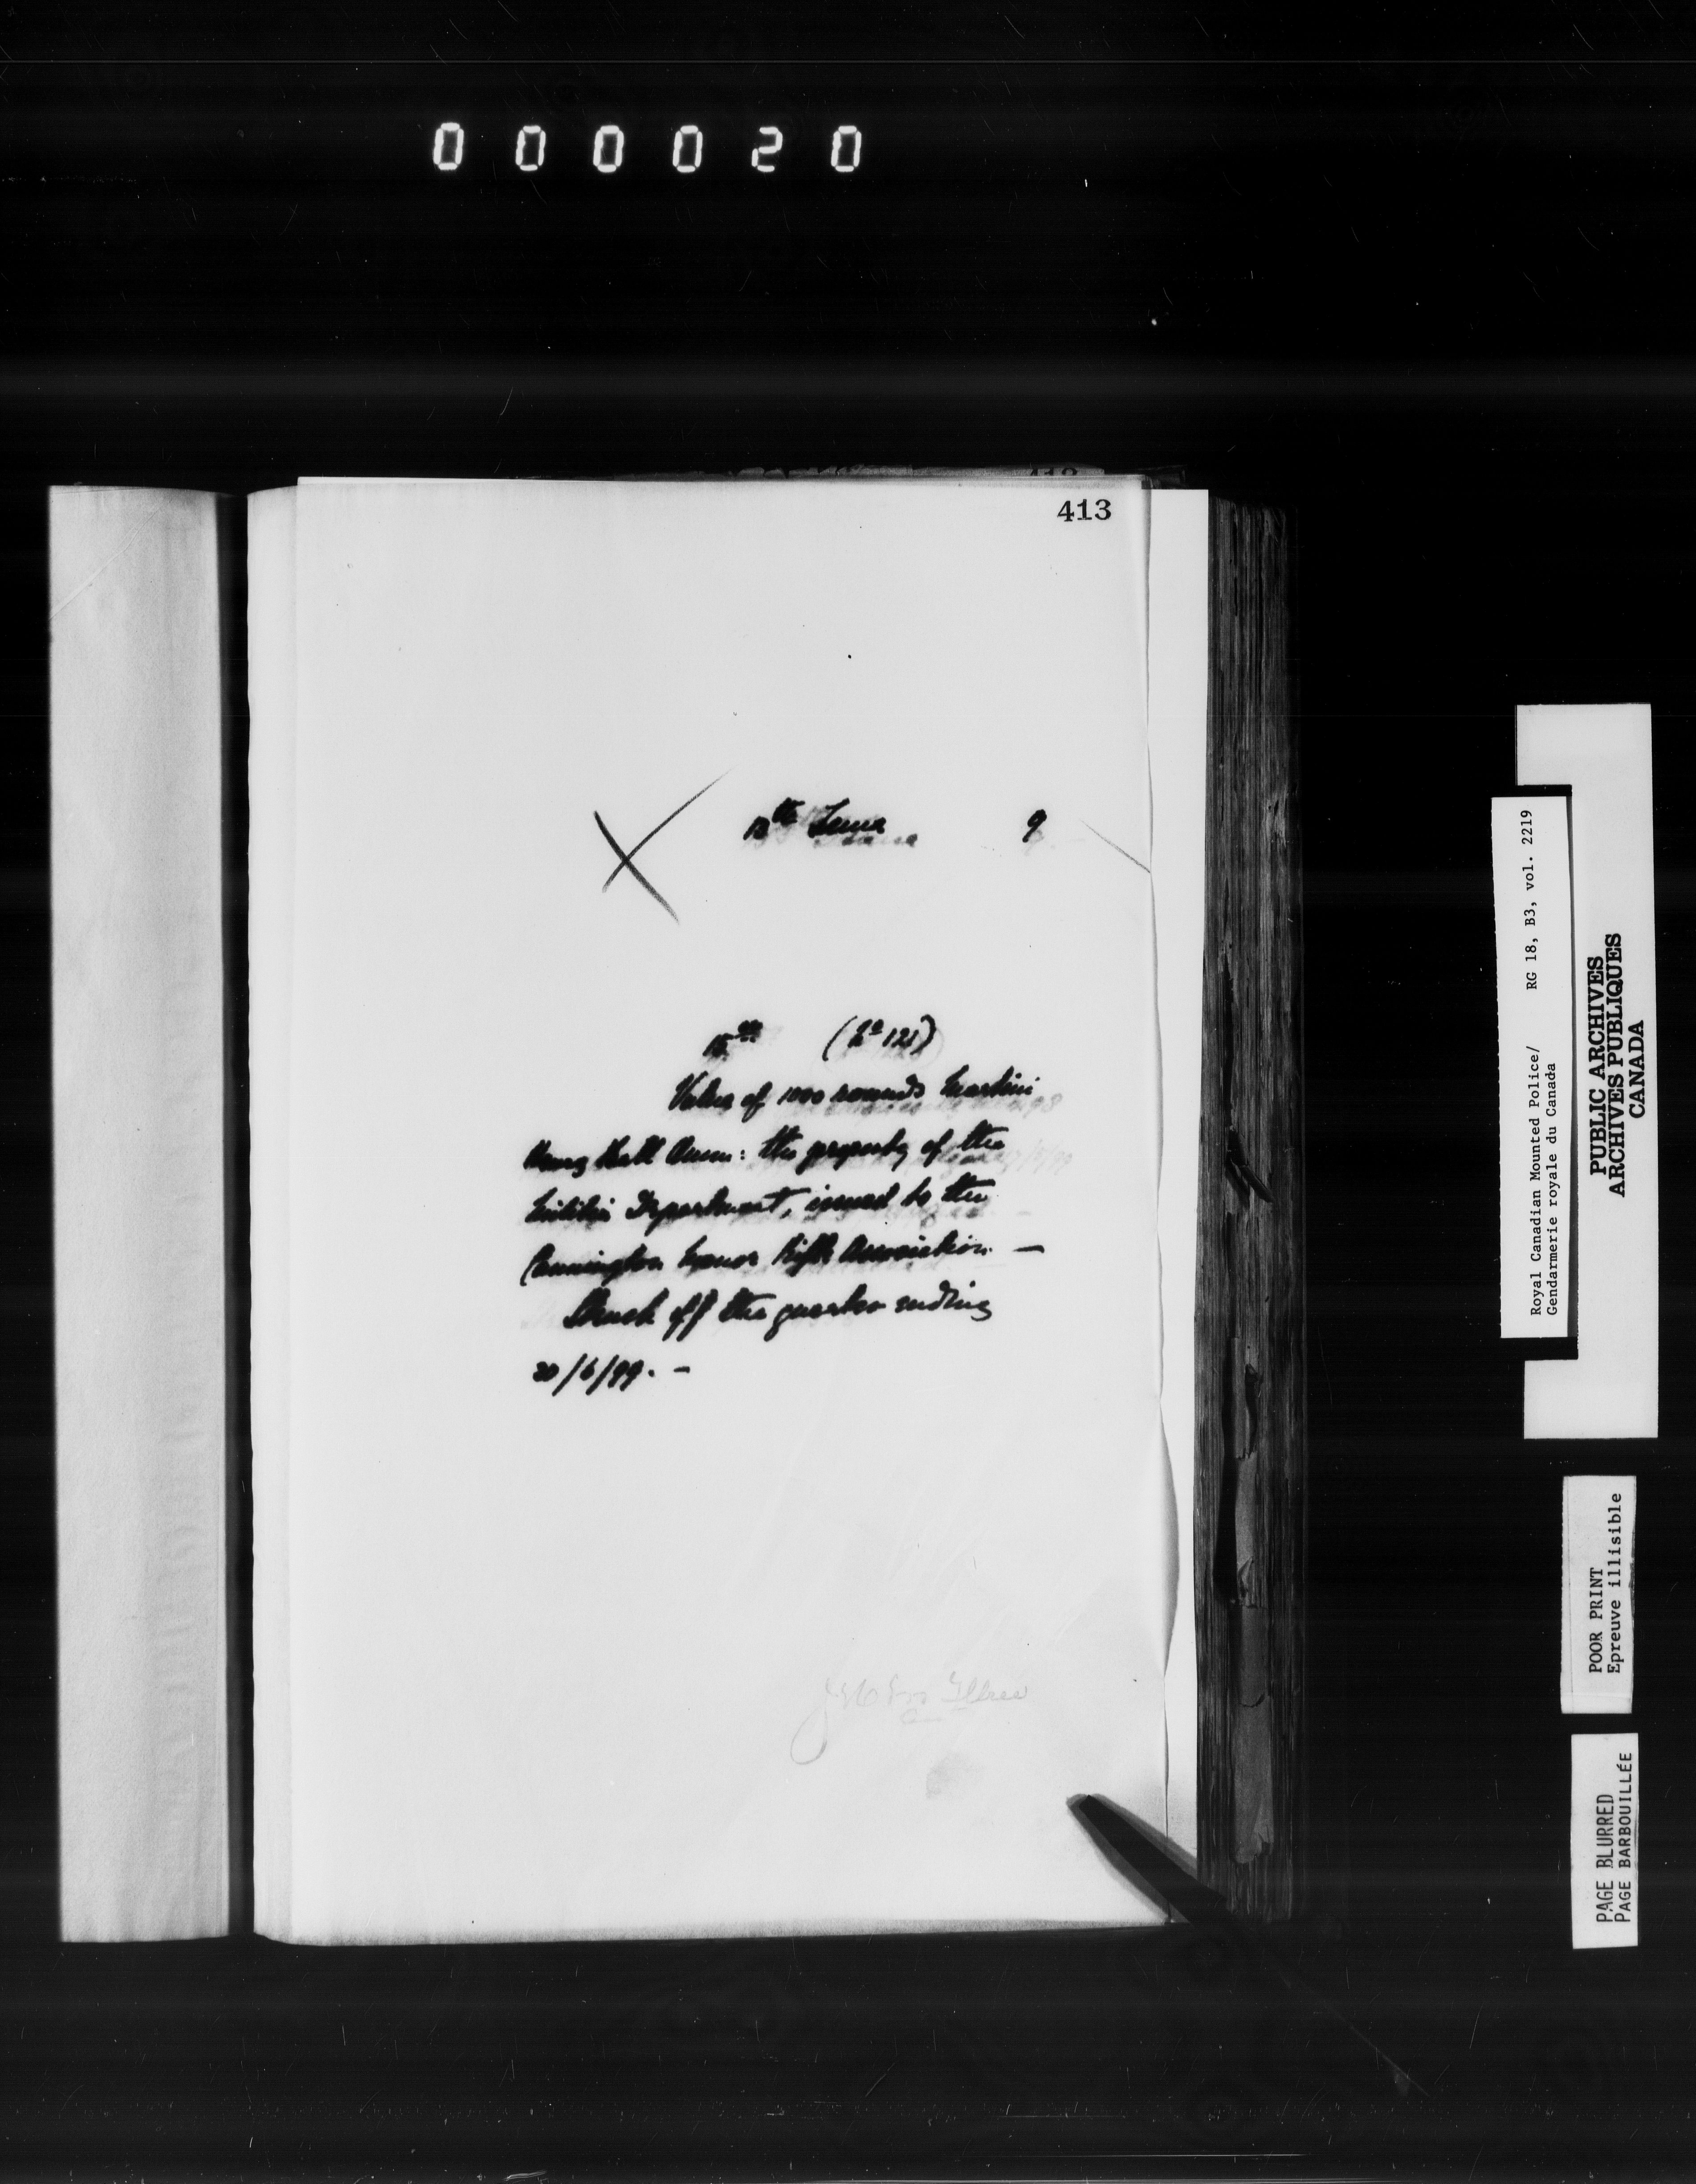 000020
413
th June 9
15th (No 121)
Value of 1000 rounds Martini
Henry Ball Amm: the property of the
Militia Department, issued to the
Cannington Manor Rifle Association. —
Struck off the quarter ending
30/6/99. —
Royal Canadian Mounted Police/ RG 18, B3, vol. 2219
Gendarmerie royale du Canada
PUBLIC ARCHIVES
ARCHIVES PUBLIQUES
CANADA
POOR PRINT
Epreuve illisible
PAGE BLURRED
PAGE BARBOUILLÉE